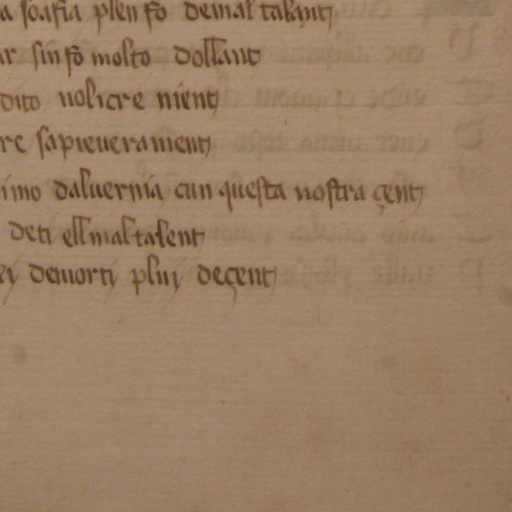 a soafia plen fo demal talant
ar sin fo molto dollant
dito uolicre nient
re sapieuerament
imo daluernia cun questa nostra çent
deti ell mal talent
ei demorti pluj deçent